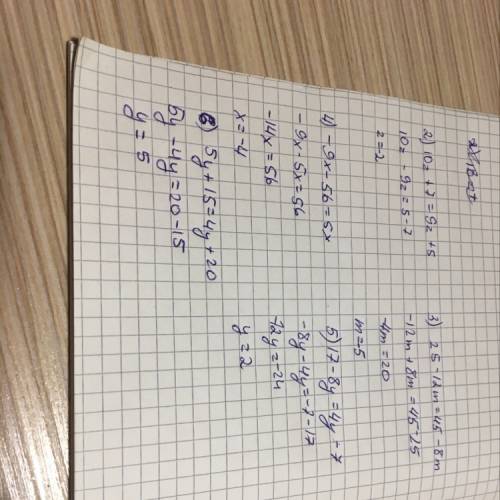 2) 10z + 7 = 9z + 5
10z - 9z = 5 - 7
z = -2
4) -9x - 56 = 5x
-9x - 5x = 56
-14x = 56
x = -4
6) 5y + 15 = 4y + 20
5y - 4y = 20 - 15
y = 5
3) 25 - 12m = 45 - 8m
-12m + 8m = 45 - 25
-4m = 20
m = -5
5) 17 - 8y = 4y - 7
-8y - 4y = -7 - 17
-12y = -24
y = 2